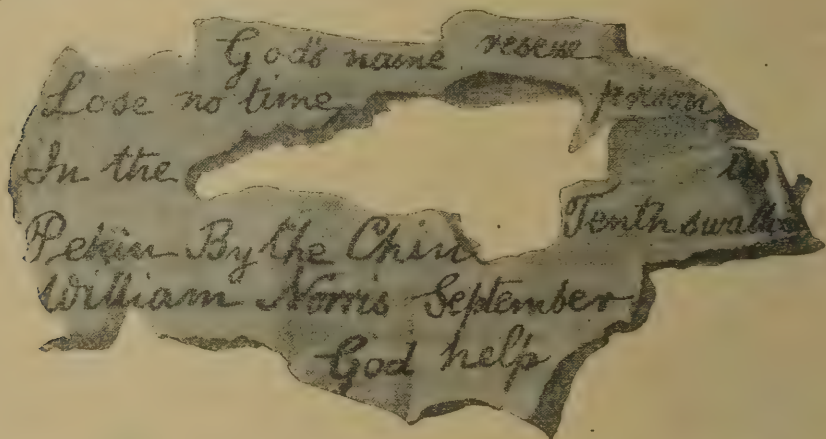 God's name rescue
Lose no time prison
In the
Tenth swall
Pekin By the Chin
William Norris September
God help